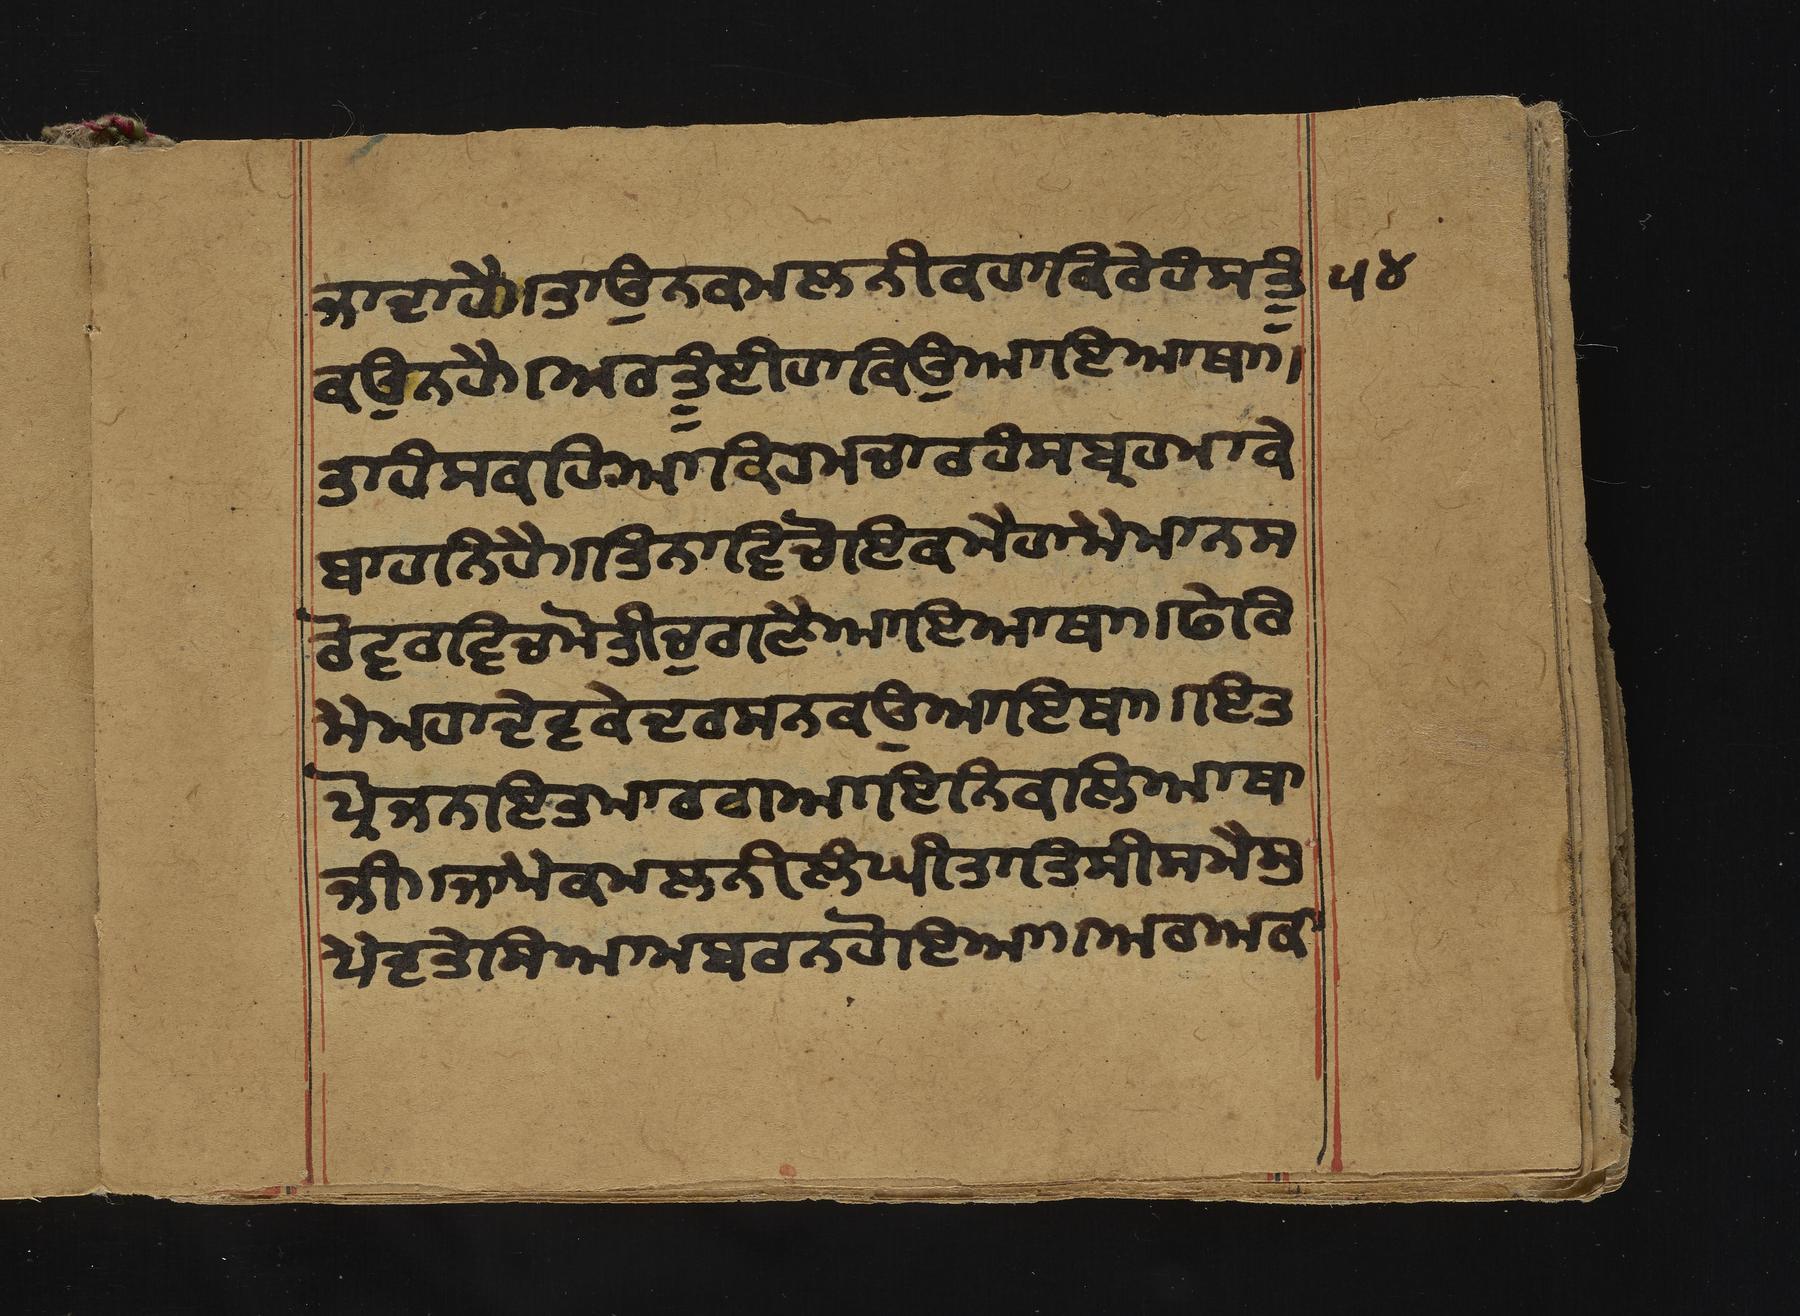 ਜਾਦਾਹੈ॥ਤਾਉਨਕਮਲਨੀਕਹਾਕਿਰੇਹੰਸਤੂੰ ੫੪
ਕਉਨਹੈ॥ਅਰਤੂੰਈਹਾਕਿਉਆਇਆਥਾ॥
ਤਾਹੰਸਕਹਿਆਕਿਹਮਚਾਰਹੰਸਬ੍ਰਹਮਾਕੇ
ਬਾਹਨਿਹੈ॥ਤਿਨਾਵਿਚੋਇਕਮੈਹਾਮੇਮਾਨਸ
ਰੋਵਰਵਿਚਮੋਤੀਚੁਗਣੈਆਇਆਥਾ॥ਫੇਰਿ
ਮੇਮਹਾਦੇਵਕੇਦਰਸਨਕਉਆਇਥਾ॥ਇਤ
ਪ੍ਰੋਜਨਇਤਮਾਰਗਆਇਨਿਕਲਿਆਥਾ
ਜੀ॥ਜਾਮੇਕਮਲਨੀਲੰਘੀਤਾਤਿਸੀਸਮੈਸੁ
ਪੇਦਤੇਸਿਆਮਬਰਨਹੋਇਆ॥ਅਰਅਕਾ